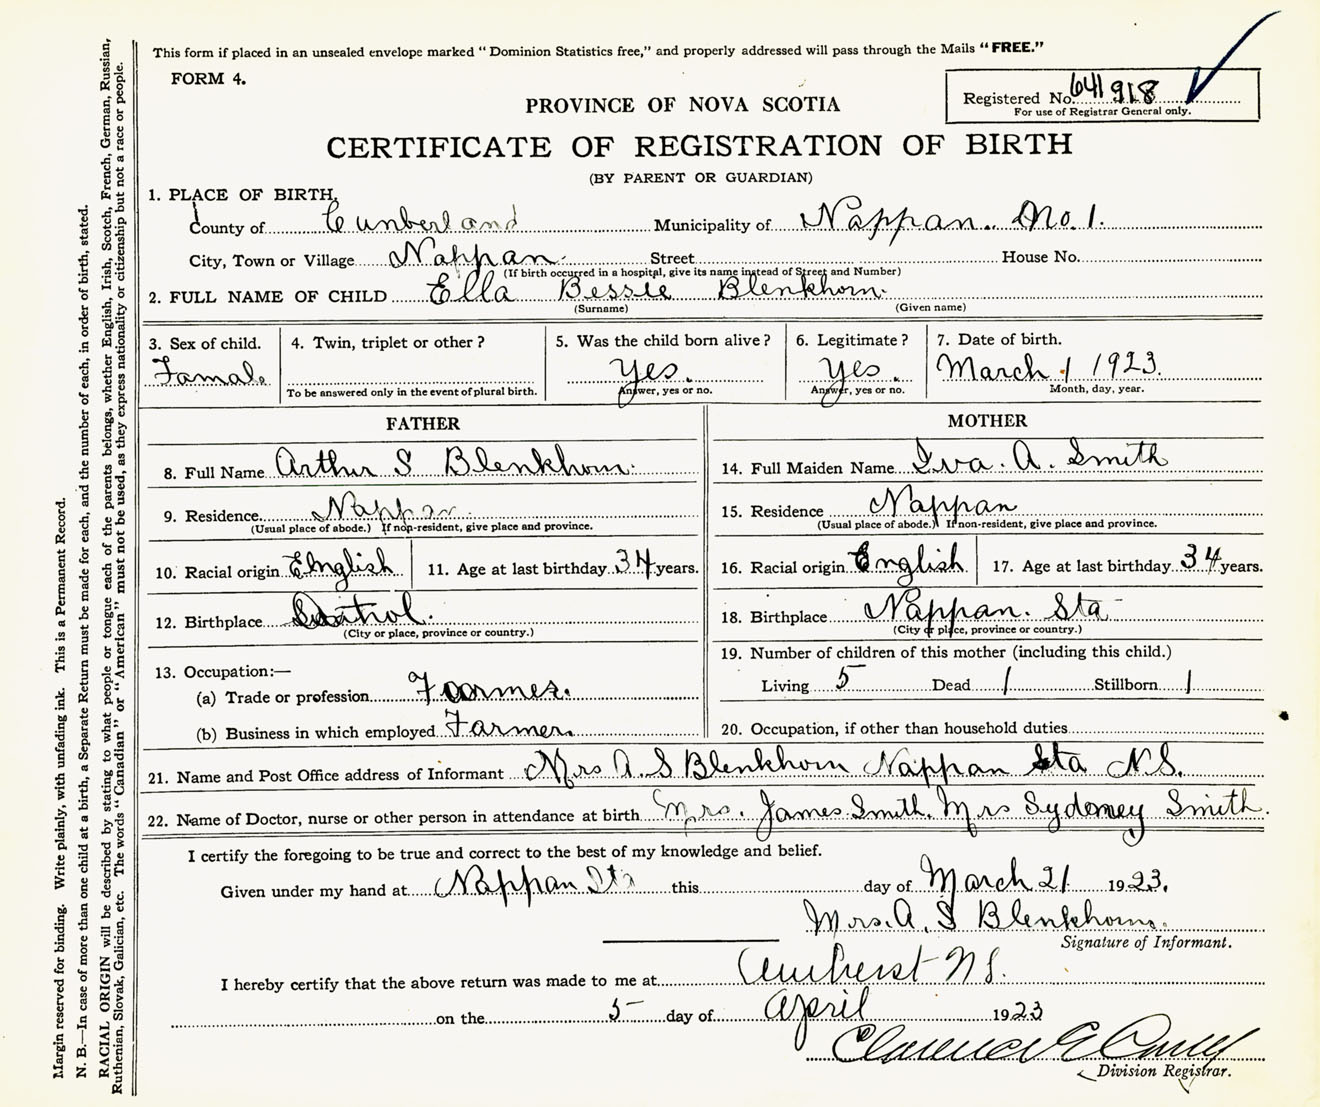 This form if placed in an unsealed envelope marked "Dominion Statistics free," and properly addressed will pass through the Mails "FREE."
FORM 4.
Registered No. 641918
For use of Registrar General only.
PROVINCE OF NOVA SCOTIA
CERTIFICATE OF REGISTRATION OF BIRTH
(BY PARENT OR GUARDIAN)
1. PLACE OF BIRTH,
County of Cunberland Municipality of Nappan. No. 1.
City, Town or Village Nappan. Street House No.
(If birth occurred in a hospital, give its name instead of Street and Number)
2. FULL NAME OF CHILD Ella Bessie Blenkhorn.
(Surname) (Given name)
3. Sex of child. 4. Twin, triplet or other? 5. Was the child born alive? 6. Legitimate? 7. Date of birth.
Famale Yes. Yes. March 1 1923.
To be answered only in the event of plural birth. Answer, yes or no. Answer, yes or no. Month, day, year.
FATHER MOTHER
8. Full Name Arthur S Blenkhorn. 14. Full Maiden Name Iva. A. Smith
9. Residence. Nappan. 15. Residence Nappan
(Usual place of abode.) If non-resident, give place and province. (Usual place of abode.) If non-resident, give place and province.
10. Racial origin English 11. Age at last birthday 34 years. 16. Racial origin English 17. Age at last birthday 34 years.
12. Birthplace 18. Birthplace Nappan. Sta
(City or place, province or country.) (City or place, province or country.)
13. Occupation:— 19. Number of children of this mother (including this child.)
(a) Trade or profession Farmer. Living 5 Dead 1 Stillborn 1
(b) Business in which employed Farmer. 20. Occupation, if other than household duties
21. Name and Post Office address of Informant Mrs A. S Blenkhorn Nappan Sta N.S.
22. Name of Doctor, nurse or other person in attendance at birth Mrs. James Smith. Mrs Sydeney Smith.
I certify the foregoing to be true and correct to the best of my knowledge and belief.
Given under my hand at Nappan Sta this day of March 21 1923.
Mrs. A. S Blenkhorn.
Signature of Informant.
I hereby certify that the above return was made to me at Amherst N S.
on the 5 day of April 1923
Clarence E
Division Registrar.
Margin reserved for binding. Write plainly, with unfading ink. This is a Permanent Record.
N. B.—In case of more than one child at a birth, a Separate Return must be made for each, and the number of each, in order of birth, stated.
RACIAL ORIGIN will be described by stating to what people or tongue each of the parents belongs, whether English, Irish, Scotch, French, German, Russian,
Ruthenian, Slovak, Galician, etc. The words "Canadian" or "American" must not be used, as they express nationality or citizenship but not a race or people.